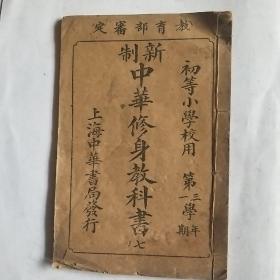 教育部審定
初等小學校用 第三學年
第一學期
新制
中華修身教科書 七
上海中華書局發行